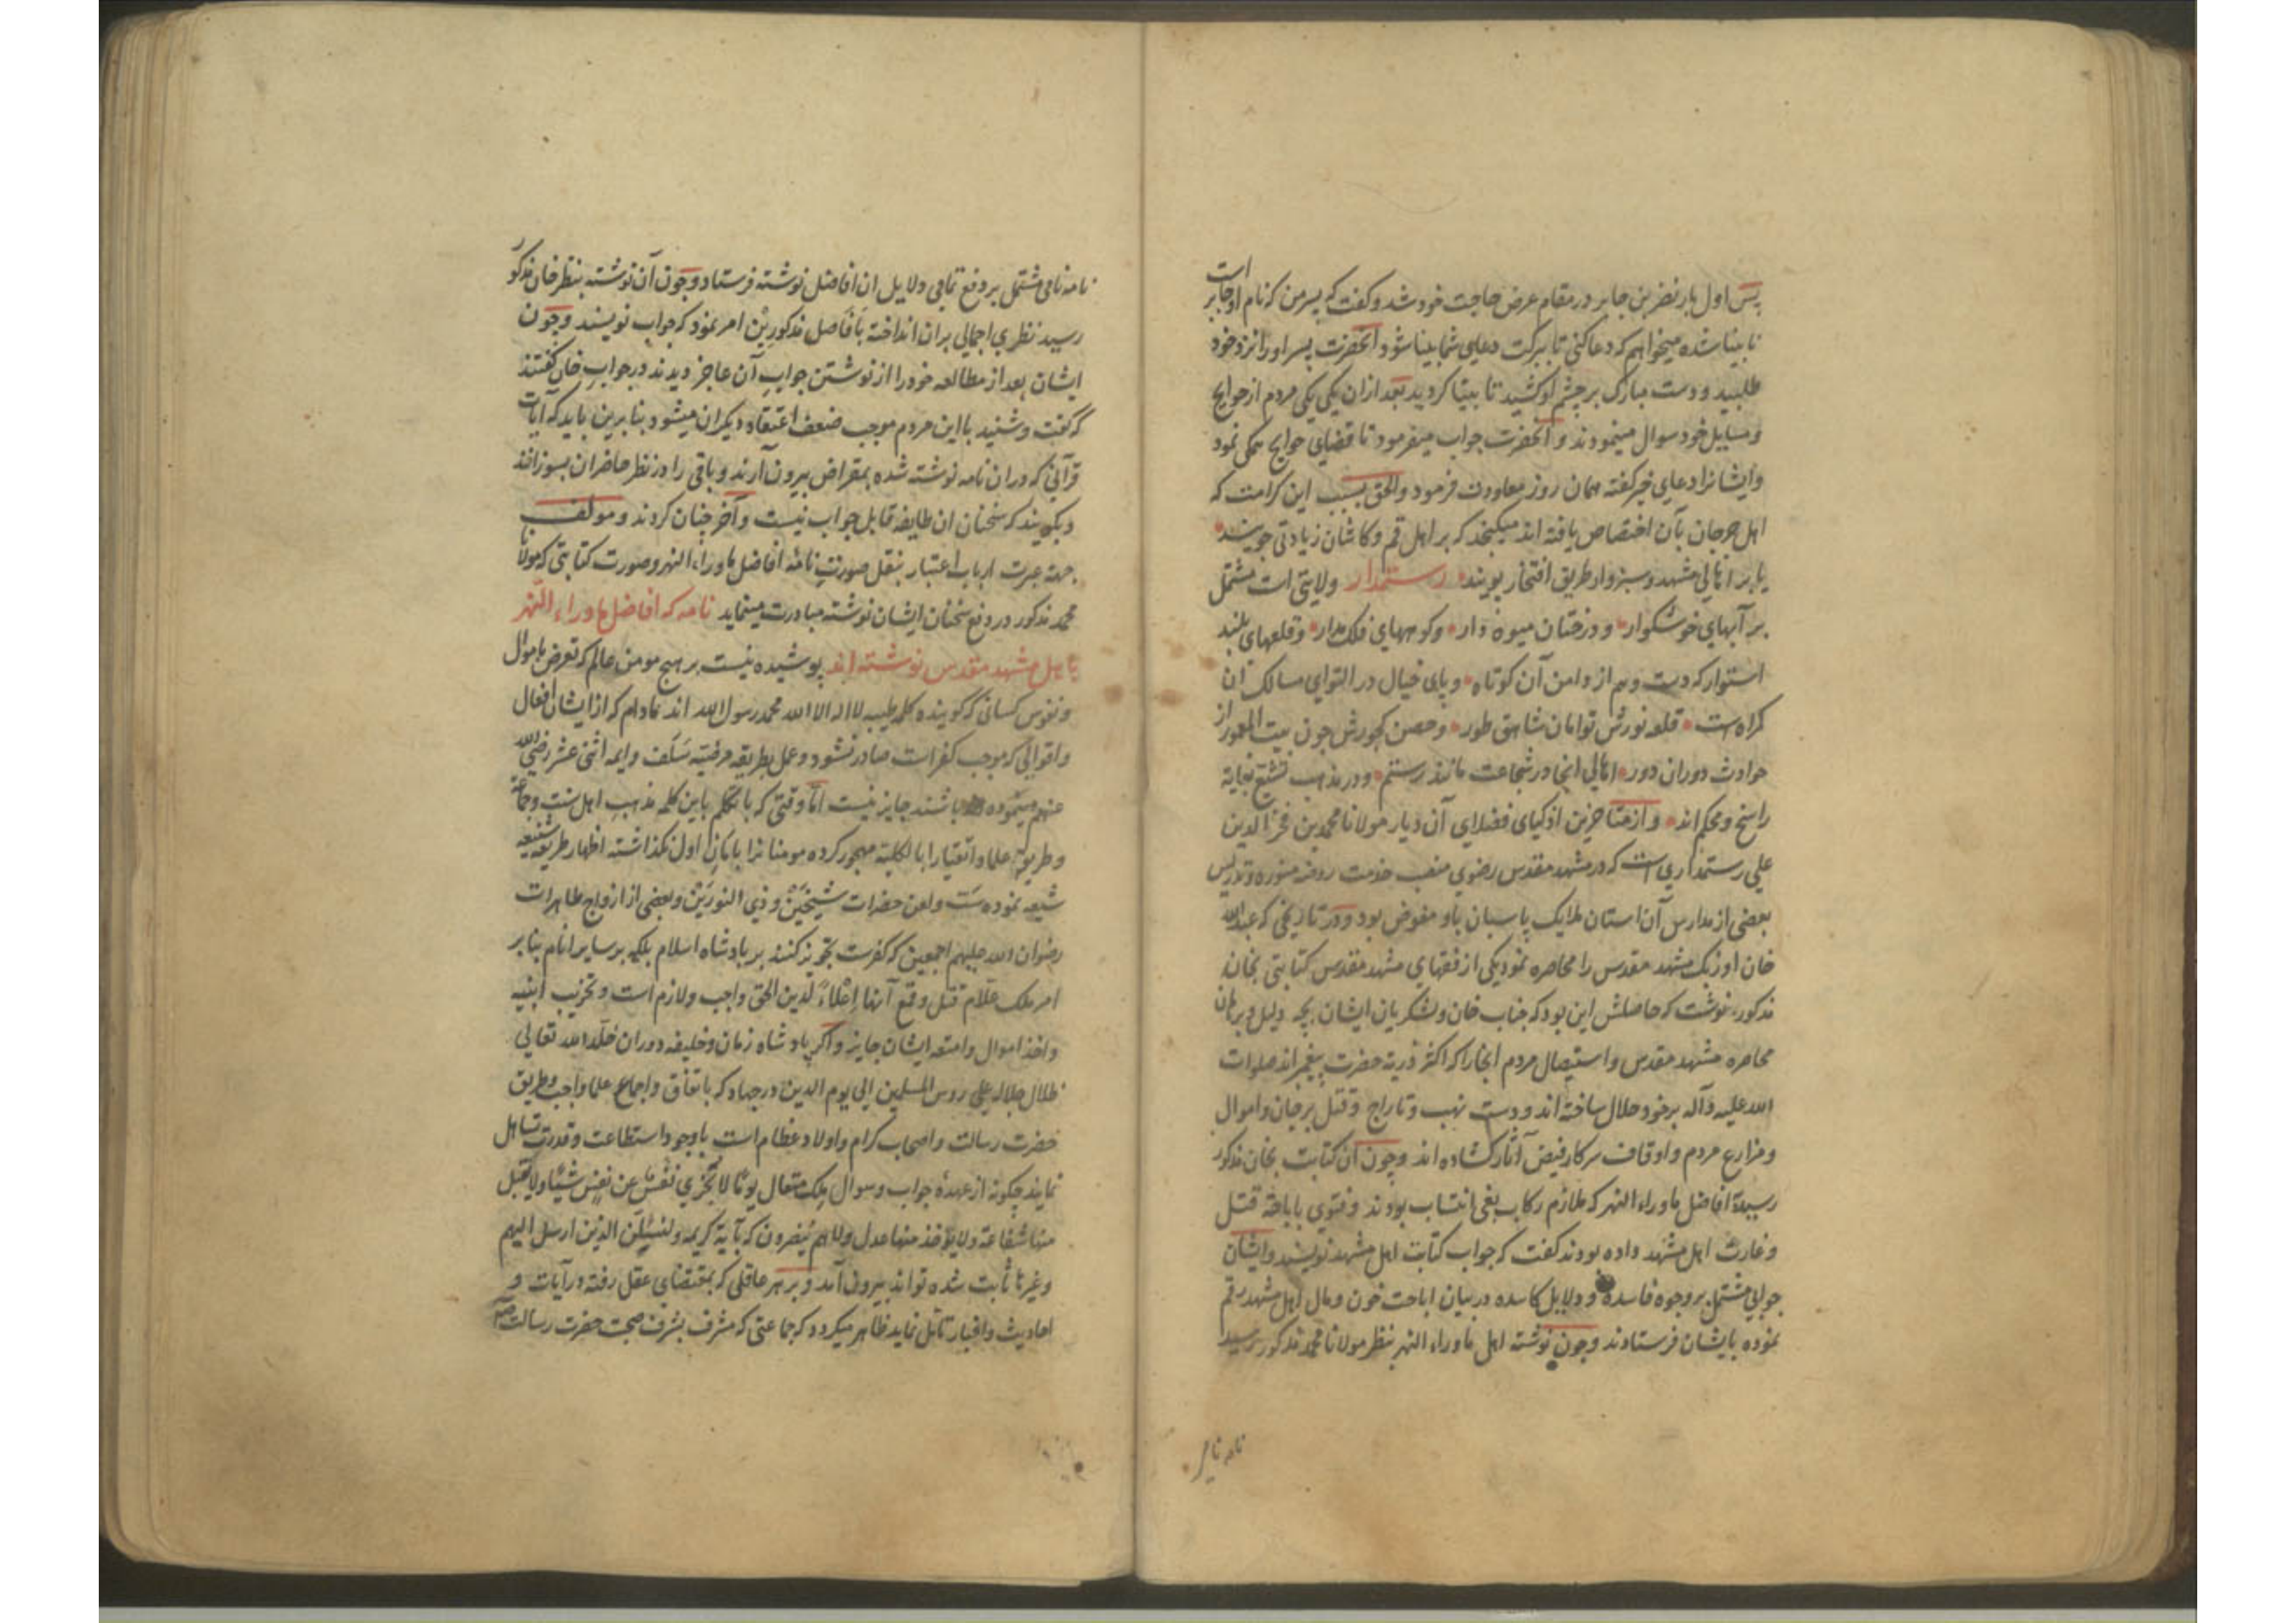 پس اول بار نضر بن جابر در مقام عرض حاجت خود شد و کفت که پسر من که نام او جابر است
نابینا شده میخواهم که دعا کنی تا ببرکت دعای شما بینا شود آنحضرت پسر او را نزد خود
طلبید و دست مبارک بر چشم او کشید تا بینا کردید بعد از ان یکی یکی مردم از حوایج
و مسایل خود سوال مینمودند و آنحضرت جواب میفرمود تا قضای حوایج همکی نمود
و ایشانرا دعای خیر کفته همان روز معاودت فرمود والحق بسبب این کرامت که
اهل جرجان بآن اختصاص یافته اند میکنجد که بر اهل قم و کاشان زیادتی جویند
یا بر اهالی مشهد و سبزوار طریق افتخار پویند رستمدار ولایتی است مشتمل
بر آبهای خوشکوار و درختان میوه دار و کوههای فلک مدار و قلعهای بلند
استوار که دست وهم از دامن آن کوتاه و پای خیال در التوای مسالک ان
کراه است قلعه نورش توامان شاهق طور و حصن کجورش چون بیت المعمور از
حوادث دوران دور اهالی انجا در شجاعت مانند رستم و در مذهب تشیع بغایة
راسخ و محکم اند و از متاخرین اذکیای فضلای آن دیار مولانا محمد بن فخر الدین
علی رستمداری است که در مشهد مقدس رضوی منصب خدمت روضه منوره و تدریس
بعضی از مدارس آن استان ملایک پاسبان باو مفوض بود و در تاریخی که عبدالله
خان اوزبک مشهد مقدس را محاصره نمود یکی از فقهای مشهد مقدس کتابتی بخان
مذکور نوشت که حاصلش این بود که جناب خان و لشکریان ایشان بچه دلیل و برهان
محاصره مشهد مقدس و استیصال مردم انجا را که اکثر ذریة حضرت پیغمبر اند صلوات
الله علیه و آله بر خود حلال ساخته اند و دست نهب و تاراج و قتل بر جان و اموال
و مزارع مردم و اوقاف سرکار فیض آثار کشاده اند و چون آن کتابت بخان مذکور
رسید افاضل ماوراء النهر که ملازم رکاب بغی انتساب بودند و فتوی باباحة قتل
و غارت اهل مشهد داده بودند کفت که جواب کتابت اهل مشهد نویسید و ایشان
جوابی مشتمل بر وجوه فاسده و دلایل کاسده در بیان اباحت خون و مال اهل مشهد رقم
نموده بایشان فرستادند و چون نوشته اهل ماوراء النهر بنظر مولانا محمد مذکور رسید
نامه نامی
نامه نامی مشتمل بر دفع تمامی دلایل ان افاضل نوشته فرستاد و چون آن نوشته بنظر خان مذکور
رسید نظری اجمالی بران انداخته بافاضل مذکورین امر نمود که جواب نویسند و چون
ایشان بعد از مطالعه خود را از نوشتن جواب آن عاجز دیدند در جواب خان کفتند
که کفت و شنید با این مردم موجب ضعف اعتقاد دیکران میشود بنابرین باید که آیات
قرآنی که در ان نامه نوشته شده بمقراض بیرون آرند و باقی را در نظر حاضران بسوزانند
و بکویند که سخنان ان طایفه قابل جواب نیست و آخر چنان کردند و مولف
جهة عبرت ارباب اعتبار بنقل صورت نامۀ افاضل ماوراء النهر و صورت کتابتی که مولانا
محمد مذکور در دفع سخنان ایشان نوشته مبادرت مینماید نامه که افاضل ماوراء النهر
باهل مشهد مقدس نوشته اند پوشیده نیست بر هیچ مومن عالم که تعرض باموال
و نفوس کسانی که کوینده کلمه طیبه لا اله الا الله محمد رسول الله اند مادام که از ایشان افعال
و اقوالی که موجب کفر است صادر نشود و عمل بطریقه مرضیه سلف و ایمه اثنی عشر رضی الله
عنهم نموده باشند جایز نیست اما وقتی که با تکلم باین کلمه مذهب اهل سنت و جماعة
و طریق علما و اتقیا را بالکلیه مهجور کرده مومنانرا بامان اول نکذاشته اظهار طریقه شنیعه
شیعه نموده سب و لعن حضرات شیخین و ذی النورین و بعضی از ازواج طاهرات
رضوان الله علیهم اجمعین که کفرست تجویز کنند بر پادشاه اسلام بلکه بر سایر انام بنابر
امر ملک علام قتل و قمع آنها اعلاءً لدین الحق واجب و لازم است و تخریب ابنیه
و اخذ اموال و امتعه ایشان جایز و اکر پادشاه زمان و خلیفه دوران خلد الله تعالی
ظلال جلاله علی روس المسلمین الی یوم الدین در جهاد که باتفاق و اجماع علما واجب و طریق
حضرت رسالت و اصحاب کرام و اولاد عظام است با وجود استطاعت و قدرت تساهل
نمایند چکونه از عهدۀ جواب و سوال ملک متعال یومًا لا تجزی نفسٌ عن نفسٍ شیئًا و لا یقبل
منها شفاعة و لا یؤخذ منها عدل و لا هم ینصرون که بآیة کریمه ولنسئلن الذین ارسل الیهم
و غیرها ثابت شده تواند بیرون آمد و بر هر عاقلی که بمقتضای عقل رفته در آیات و
احادیث و اخبار تامل نماید ظاهر میکردد که جماعتی که مشرف بشرف صحبت حضرت رسالت